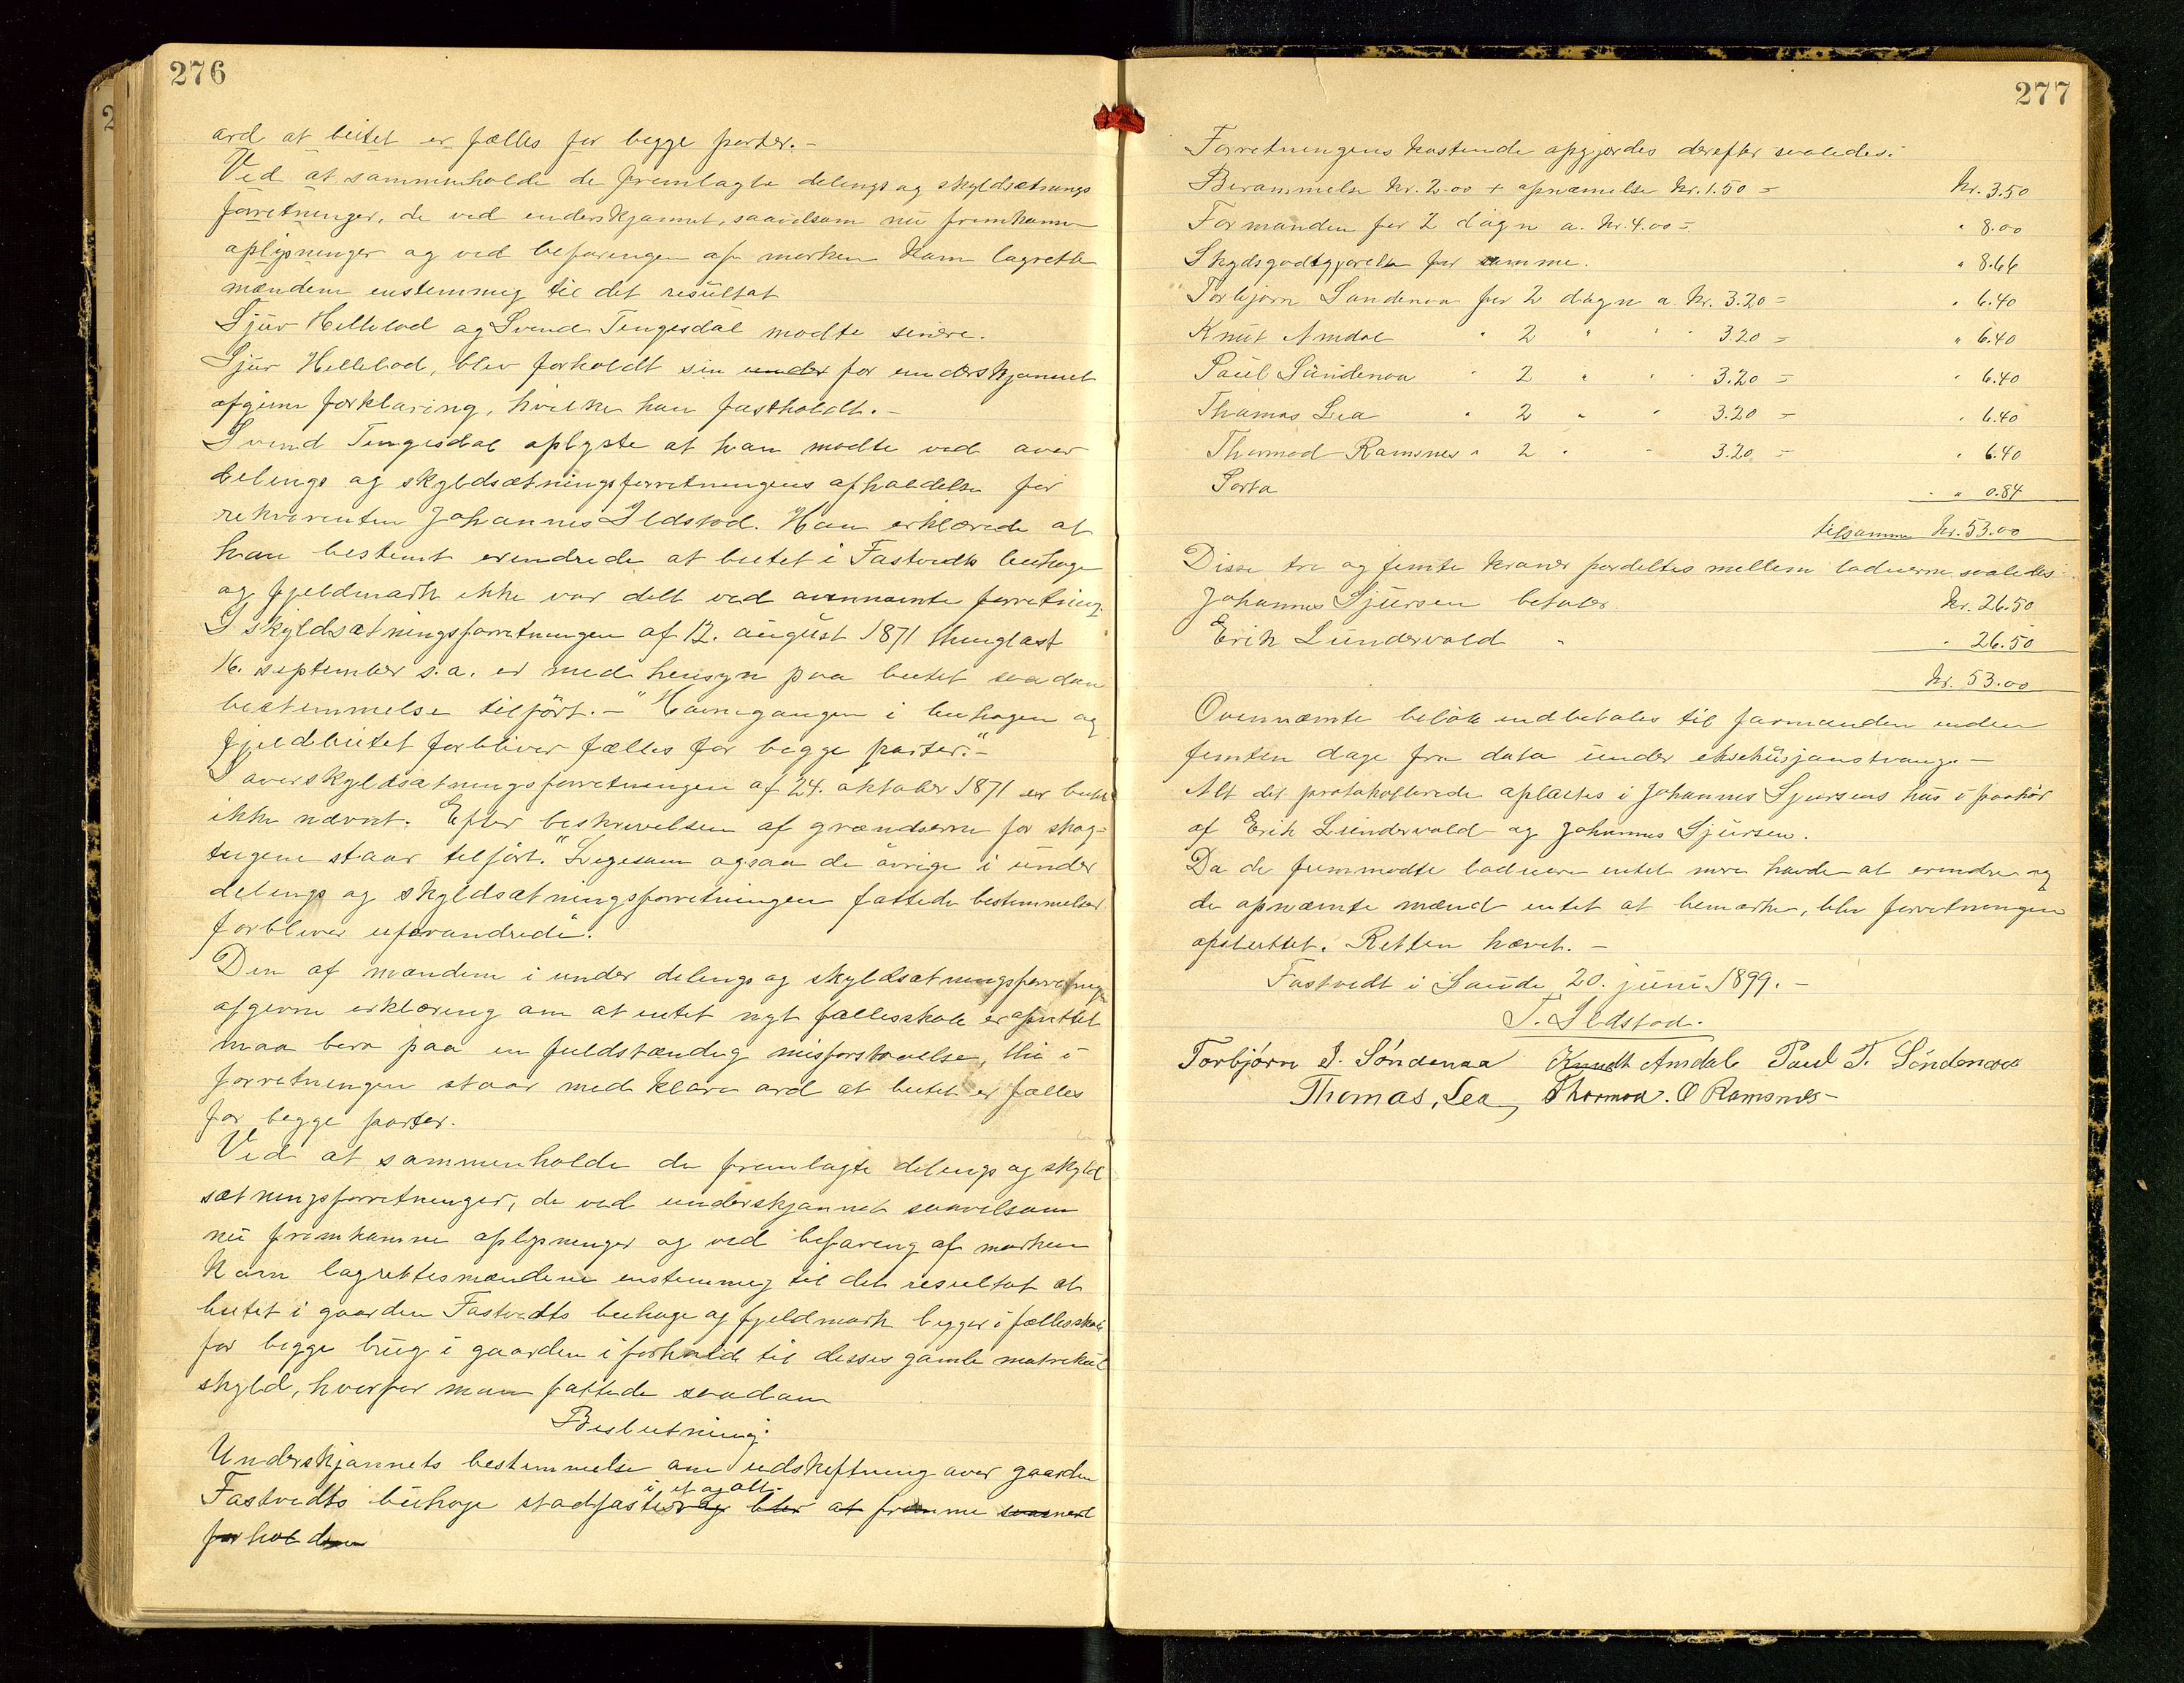 276
ord at beitet er fælles for begge parter.-
Ved at sammenholde de fremlagte delings og skyldsætnings
forretninger, de ved underskjønnet, saavelsom nu fremkomne
oplysninger og ved befaringen af marken kom lagrette
mændene enstemmig til det resultat
Sjur Hellebod og Svend Tengesdal mødte senere.
Sjur Hellebod, blev forholdt sin under for underskjønnet
afgivne forklaring, hvilke han fastholdt.-
Svend Tengesdal oplyste at han mødte ved over
delings og skyldsætningsforretningens afholdelse for
rekvirenten Johannes Ildstad. Han erklærede at
han bestemt erindrede at beitet i Fastvedts buhage
og fjeldmark ikke var delt ved ovennævnte forretning.
I skyldsætningsforretningen af 12. august 1871 thinglæst
16. september s.a. er med hensyn paa beitet saadan
bestemmelse tilført.- "Havnegangen i buhagen og
fjeldbeitet forbliver fælles for begge parter."-
I overskyldsætningsforretningen af 24. oktober 1871 er beitet
ikke nævnt. Efter beskrivelsen af grændserne for skog-
teigene staar tilført. "Ligesom ogsaa de øvrige i under
delings og skyldsætningsforretningen fattede bestemmelser
forbliver uforandrede".
Den af mændene i under delings og skyldsætningsforretningen
afgivne erklæring om at intet nyt fællesskab er opsattet
maa bero paa en fuldstændig misforstaaelse, thi i
forretningen staar med klare ord at beitet er fælles
for begge parter.
Ved at sammenholde de fremlagte delings og skyld
sætningsforretninger, de ved underskjønnet saavelsom
nu fremkomne oplysninger og ved befaring af marken
kom lagrettesmændene enstemmig til det resultat at
beitet i gaarden Fastvedts buhage og fjeldmark ligger i fællesskab
for begge brug i gaarden i forhold til disses gamle matrikul
skyld, hvorfor man fattede saadan
Beslutning:
Underskjønnets bestemmelse om udskiftning over gaarden
i et og alt.
Fastvedts buhage stadfæstes og blev at fremme saavel
forholdene
277
Forretningens kostende opgjordes derefter saaledes:
Berammelse kr. 2.00 + opnæmelse kr. 1.50 = kr. 3.50
Formanden for 2 døgn a. kr. 4.00 = " 8.00
Skydsgodtgjørelse for samme. " 8.66
Torbjørn Søndenaa for 2 døgn a kr. 3.20 = " 6.40
Knut Amdal " 2 " " " 3.20 = " 6.40
Paul Søndenaa " 2 " " " 3.20 = " 6.40
Thomas Lea " 2 " " 3.20 = " 6.40
Thormod Ramsnes " 2 " " 3.20 = " 6.40
Porto " 0.84
tilsammen kr. 53.00
Disse tre og femti kroner fordeltes mellem lodeierne saaledes:
Johannes Sjursen betaler kr. 26.50
Erik Lundervold " " 26.50
kr. 53.00
Ovennævnte beløb indbetales til formanden inden
femten dage fra dato under eksekusjonstvang.-
Alt det protokollerede oplæstes i Johannes Sjursens hus i paahør
af Erik Lundervold og Johannes Sjursen.
Da de fremmødte lodeiere intet mere havde at erindre og
de opnævnte mænd intet at bemærke, blev forretningen
afsluttet. Retten hævet.-
Fastvedt i Saude 20. juni 1899.-
T. Ildstad.
Torbjørn J. Søndenaa Knudt Amdal Paul T. Søndenaa
Thomas, Lea, Thormod. O Ramsnes-